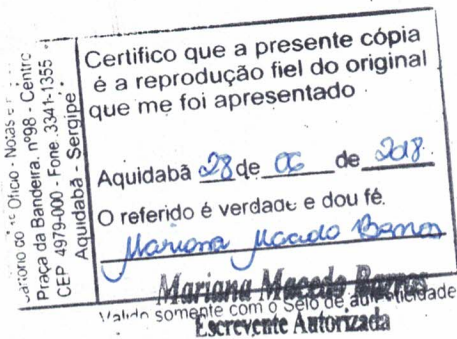 Cartorio do 1º Oficio - Notas e
Praça da Bandeira, nº98 - Centro
CEP 4979-000 - Fone 3341-1355
Aquidabã - Sergipe
Certifico que a presente cópia
é a reprodução fiel do original
que me foi apresentado
Aquidabã 28 de 06 de 2018.
O referido é verdade e dou fé.
Mariana Macedo Barros
Mariana Macedo Barros
Valido somente com o Selo de autenticidade
Escrevente Autorizada